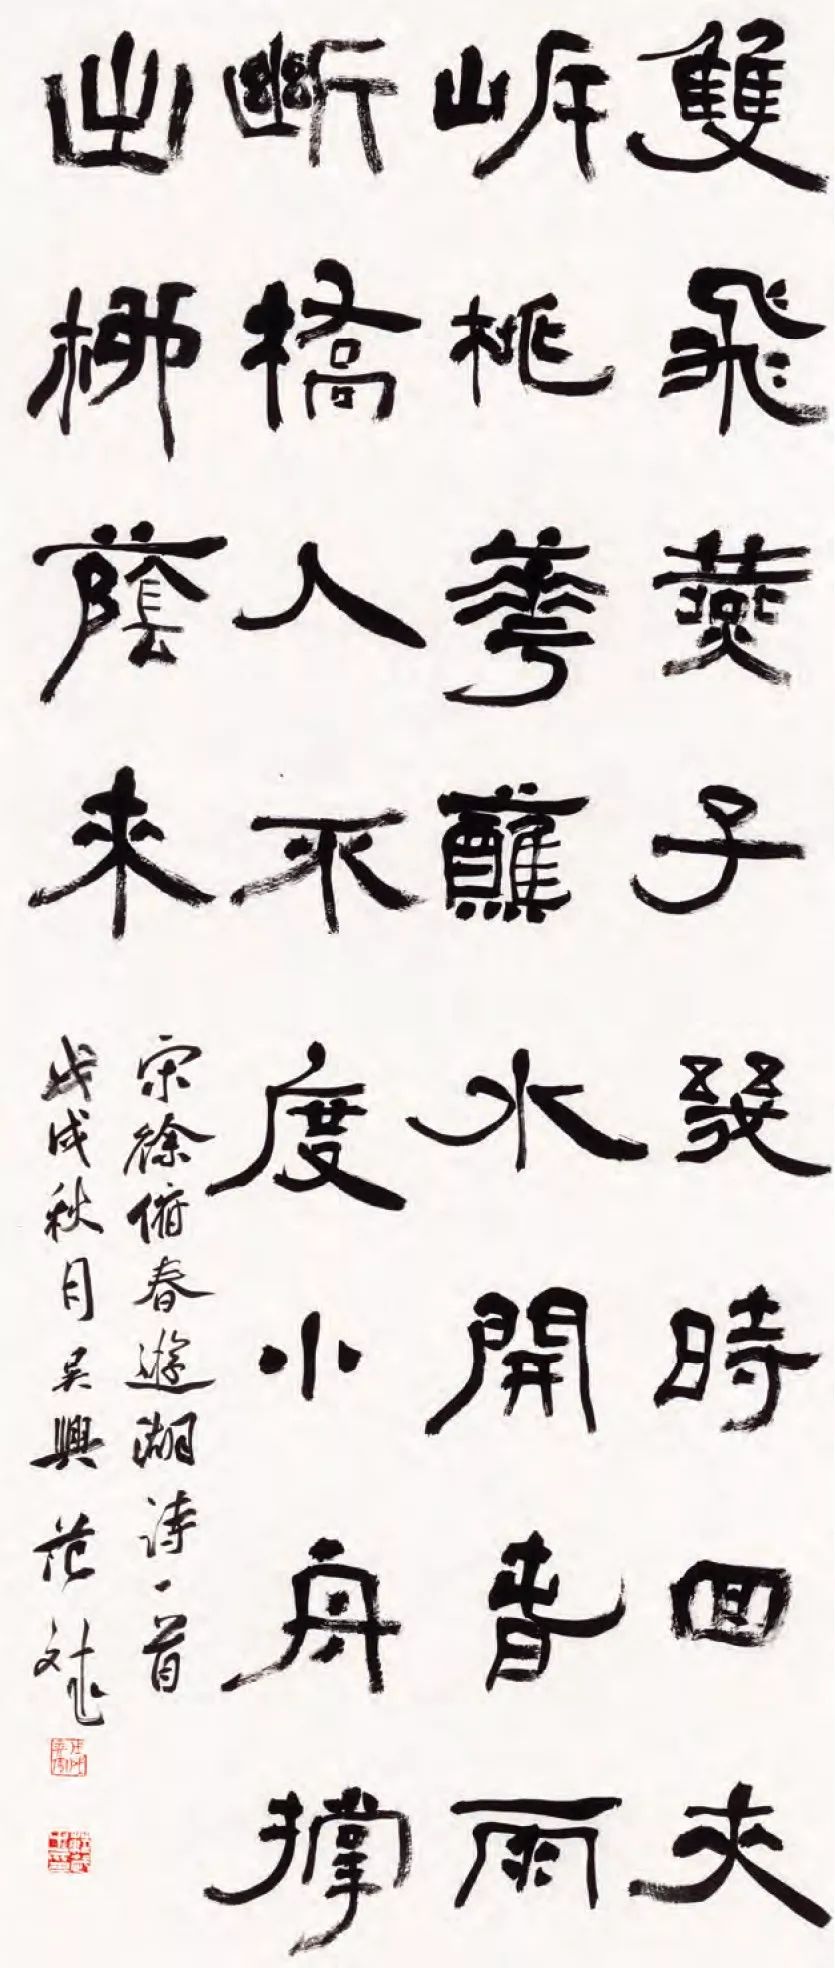 雙飛燕子幾時回夾
岸桃華蘸水開春雨
斷橋人不度小舟撐
出柳蔭來
宋徐俯春遊湖詩一首
戊戌秋月吳興范斌